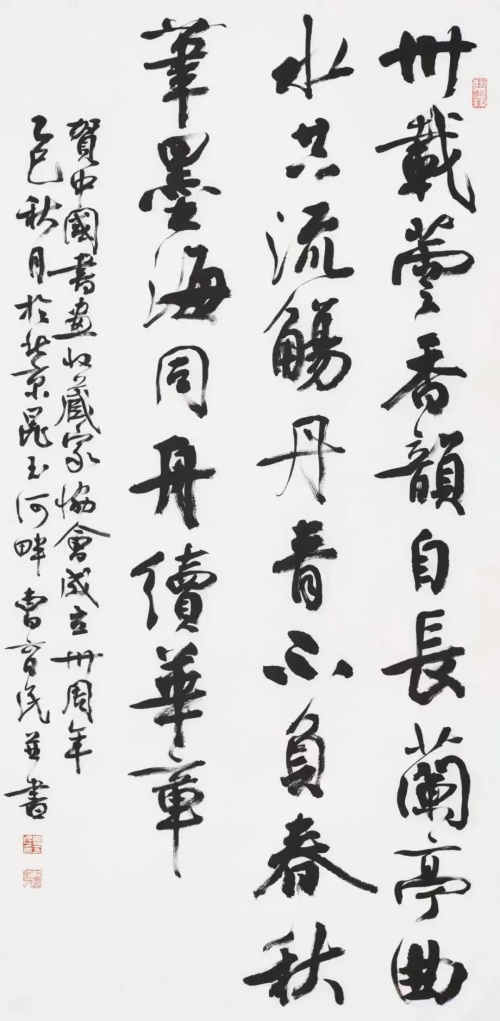 卅載芸香韻自長蘭亭曲
水共流觴丹青不負春秋
筆墨海同舟續華章
賀中國書畫收藏家協會成立卅周年
乙巳秋月於北京昆玉河畔曹育民並書